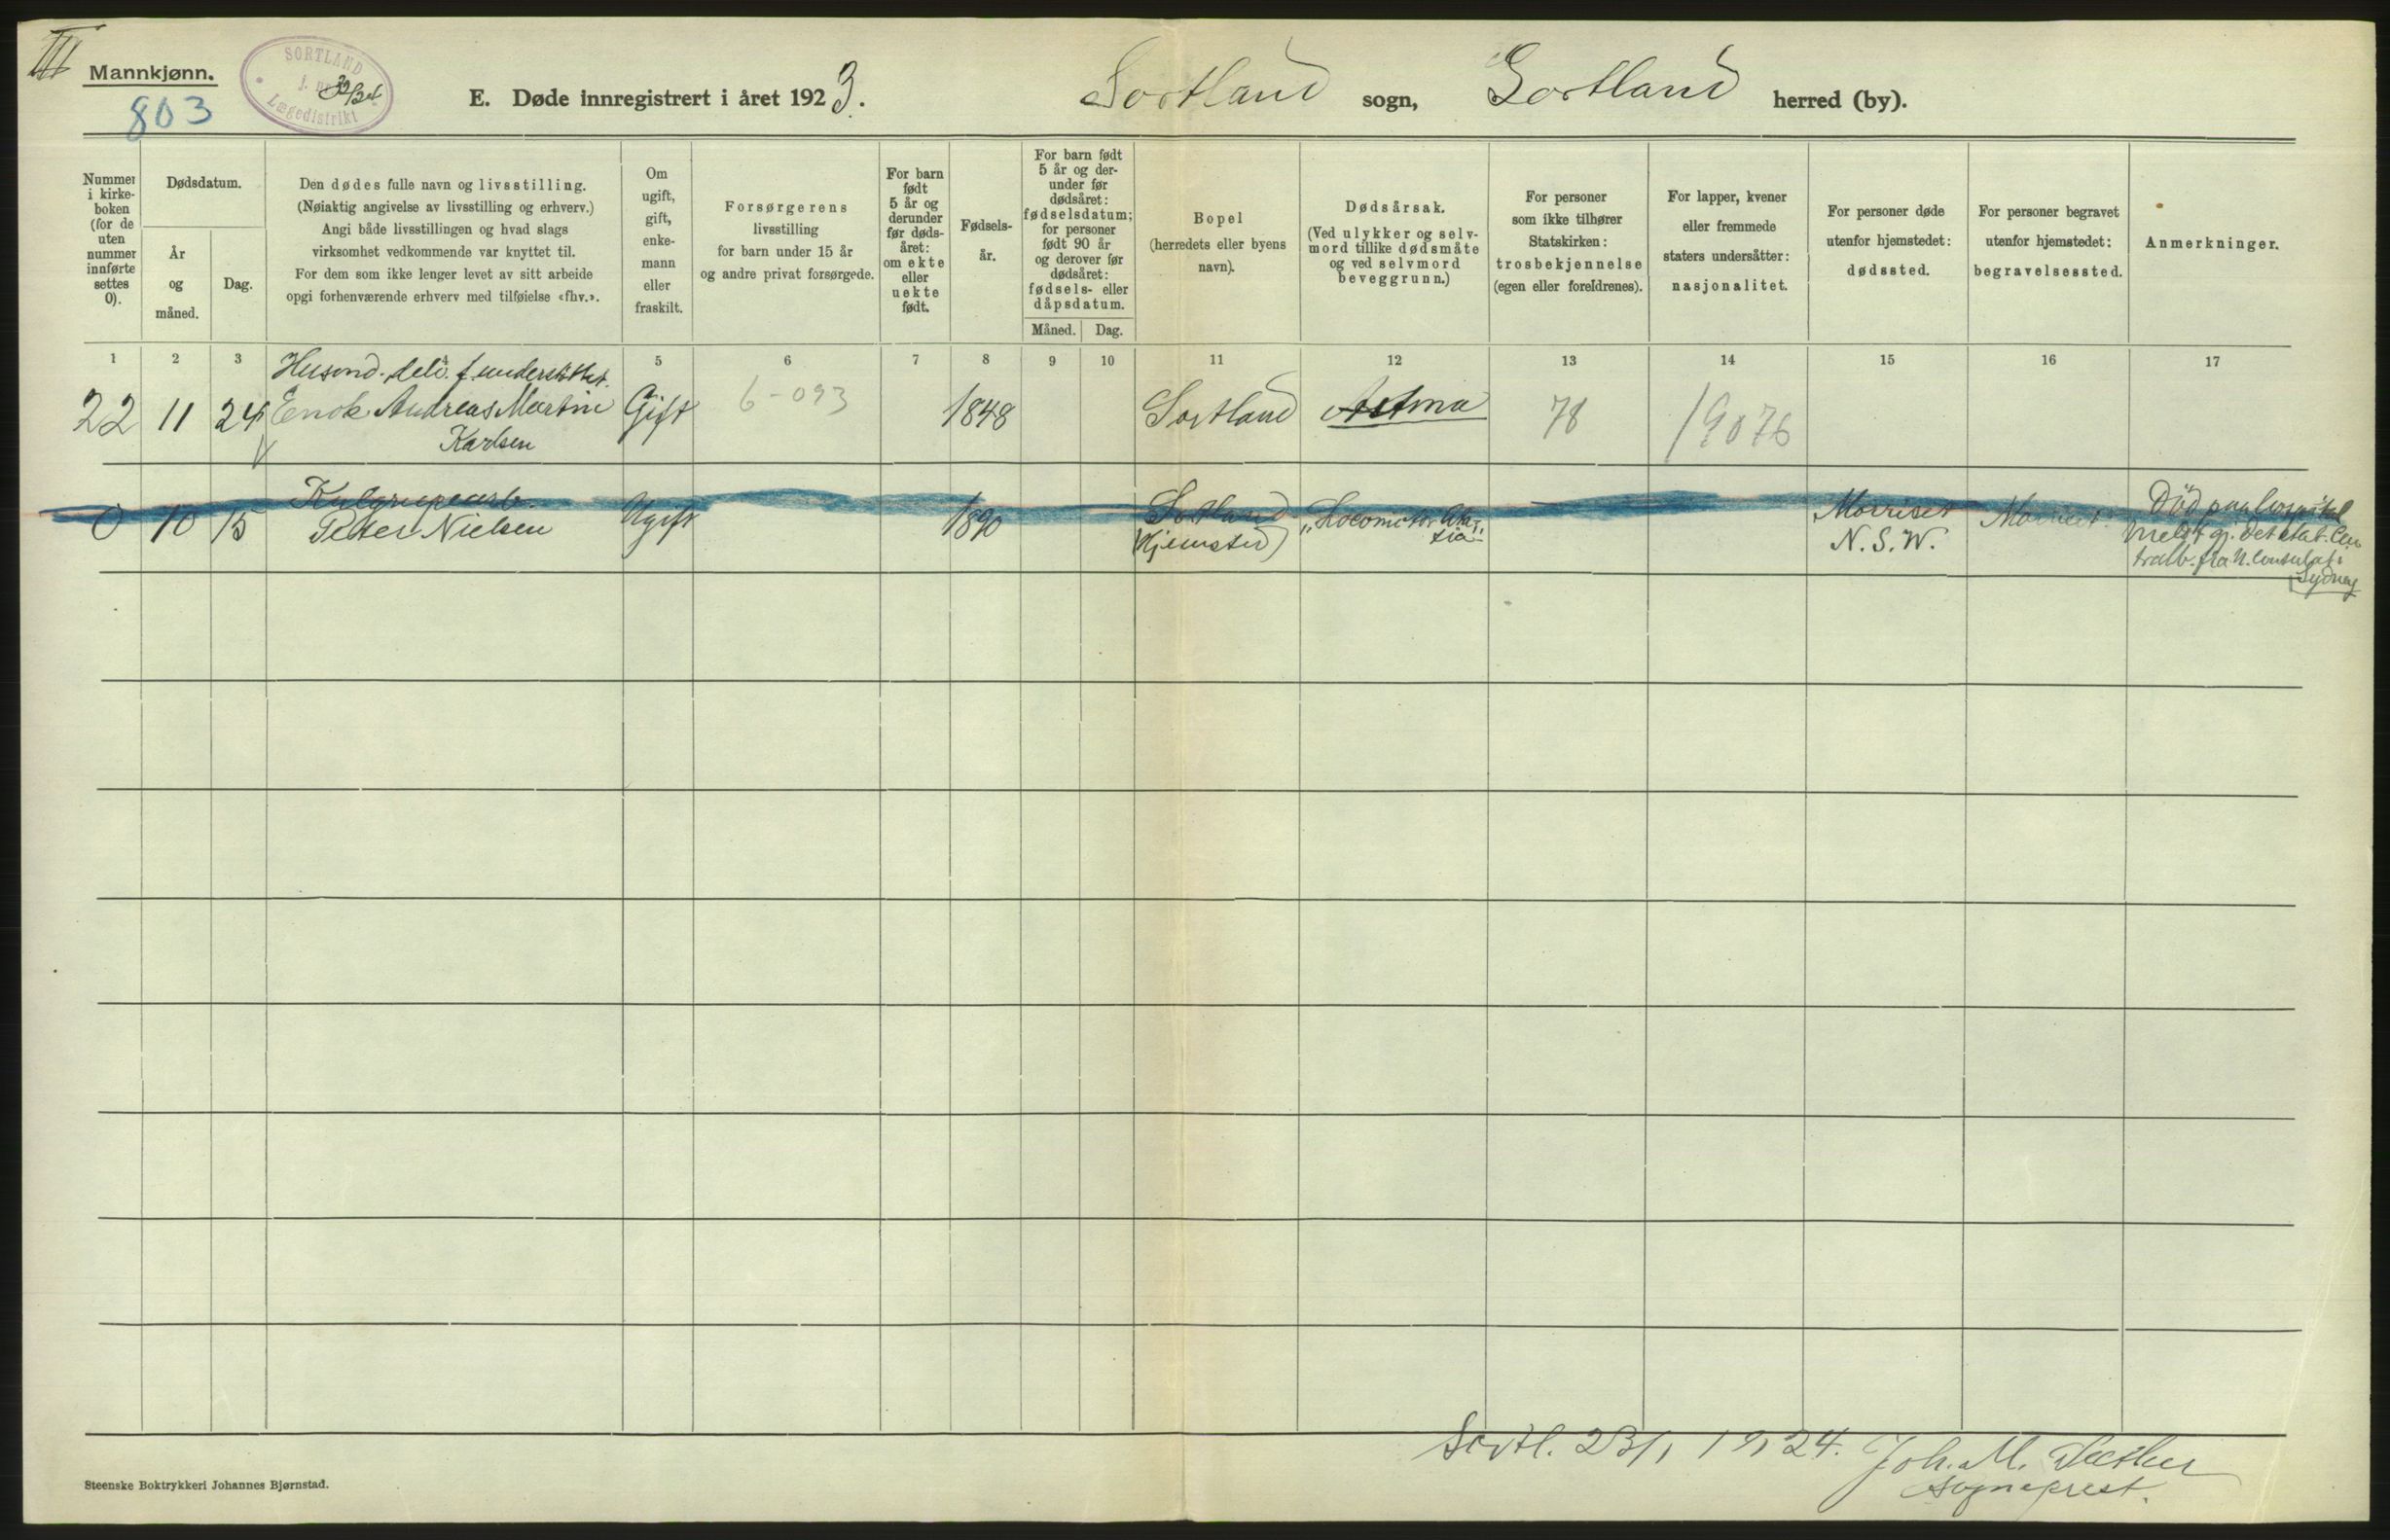 III
Mannkjønn.
803
SORTLAND
Lægedistrikt
E. Døde innregistrert i året 1923.
Sortland sogn, Sortland herred (by).
Nummer
i kirke-
boken
(for de
uten
nummer
innførte
settes
0).
Dødsdatum.
År
og
måned.
Dag.
Den dødes fulle navn og livsstilling.
(Nøiaktig angivelse av livsstilling og erhverv.)
Angi både livsstillingen og hvad slags
virksomhet vedkommende var knyttet til.
For dem som ikke lenger levet av sitt arbeide
opgi forhenværende erhverv med tilføielse «fhv.».
Om
ugift,
gift,
enke-
mann
eller
fraskilt.
Forsørgerens
livsstilling
for barn under 15 år
og andre privat forsørgede.
For barn
født
5 år og
derunder
før døds-
året:
om ekte
eller
uekte
født.
Fødsels-
år.
For barn født
5 år og der-
under før
dødsåret:
fødselsdatum;
for personer
født 90 år
og derover før
dødsåret:
fødsels- eller
dåpsdatum.
Måned. Dag.
Bopel
(herredets eller byens
navn).
Dødsårsak.
(Ved ulykker og selv-
mord tillike dødsmåte
og ved selvmord
beveggrunn.)
For personer
som ikke tilhører
Statskirken:
trosbekjennelse
(egen eller foreldrenes).
For lapper, kvener
eller fremmede
staters undersåtter:
nasjonalitet.
For personer døde
utenfor hjemstedet:
dødssted.
For personer begravet
utenfor hjemstedet:
begravelsessted.
Anmerkninger.
1 2 3 5 6 7 8 9 10 11 12 13 14 15 16 17
Husmd. delv. f. understöttet.
22 11 24 Enok Andreas Martin Gift 6-093 1848 Sortland Astma 78 19076
Karlsen
Kulgrupearb.
0 10 15 Peter Nielsen Ugift 1890 Sortland "Locomotor Ata- Morriset Morriset
(Hjemsted) xia" N.S.W.
Död paa hospital
meldt gj. Det stat. Cen
tralb. fra N. Consulat i
Sydney
Sortl. 23/1 1924.
Joh. M.
Sogneprest.
Steenske Boktrykkeri Johannes Bjørnstad.